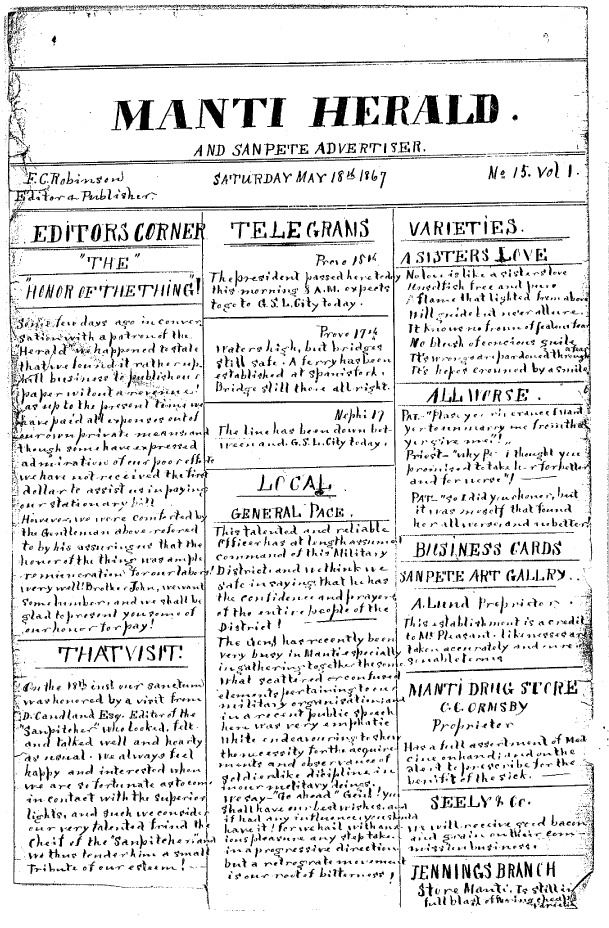 MANTI HERALD.
AND SANPETE ADVERTISER.
F.C. Robinson
Editor & Publisher.
SATURDAY MAY 18th 1867
No 15. Vol 1.
EDITORS CORNER
"THE"
"HONOR OF THE THING"!
Some few days ago in conver
sation with a patron of the
Herald" we happened to state
that we found it rather up
hill business to publish our
paper without a revenue!
as up to the present time we
have paid all expenses out of
our own private means and
though some have expressed
admiration of our poor efforts
we have not received the first
dollar to assist us in paying
our stationary bill
However, we were comforted by
the Gentleman above refered
to by his assuring us that the
honor of the thing was ample
remuneration for our labors!
very well! Brother John, we want
some number, and we shall be
glad to present you some of
our honor for pay!
THAT VISIT!
On the 18th inst our sanctum
was honored by a visit from
D. Candland Esq. Editor of the
"Sanpitcher" who looked, felt
and talked well and hearty
as usual. We always feel
happy and interested when
we are so fortunate as to come
in contact with the superior
lights, and such we consider
our very talented frind the
Cheif of the "Sanpitcher" and
we thus tender him a small
Tribute of our esteem!
TELEGRAMS
Provo 18th
The president passed here today
this morning 8 A.M. expects
to go to G.S.L. City today.
Provo 17th
Waters high, but bridges
still safe. A ferry has been
established at spanisfork.
Bridge still there all right.
Nephi 17
The line has been down bet
ween and G.S.L. City today.
LOCAL
GENERAL PACE.
This talented and reliable
Officer has at length assumed
command of this Military
District and we think we
safe in saying that he has
the confidence and prayers
of the entire people of the
District!
The Genl has recently been
very busy in Manti especially
in gathering together the some
what scattered or confused
elements pertaining to our
military organisation, and
in a recent public speech
here was very emphatic
while endeavouring to show
the necessity for the acquire
ments and observance of
soldierlike dicipline in
in our melitary doings.
We say "Go ahead" Genl! you
shall have our best wishes, and
if had any influence you should
have it! for we hail with anx
ious pleasure any step taken
in a progressive direction
but a retrograte movement
is our root of bitterness!
VARIETIES.
A SISTERS LOVE
No love is like a sisters love
Unselfish free and pure
A flame that lighted from above
Will guide but never allure.
It knows no frown of jealous fear
No blush of concious guile
It's wrongs are pardoned through
It's hopes crowned by a smile
ALL WORSE.
PAT- "Plase yer riverance I want
yer to unmarry me from that
yer give me"!,,
Priest- "why Pa i thought you
promised to take her for better
and for worse"!
PAT- "so I did yer honer, but
it was meself that found
her all worse and no better!
BUSINESS CARDS
SANPETE ART GALLRY..
A. Lund Proprietor.
This establishment is a credit
to Mt Pleasant. likenesses are
taken accurately and on rea
sonable terms
MANTI DRUG STORE
C.C. ORMSBY
Proprietor
Has a full assortment of Med
icine on hand, and on the
alert to prescribe for the
benifit of the sick.
SEELY & Co.
We will receive good bacon
and grain on their com
mission business.
JENNINGS BRANCH
Store Manti. Is still in
full blast offering cheap